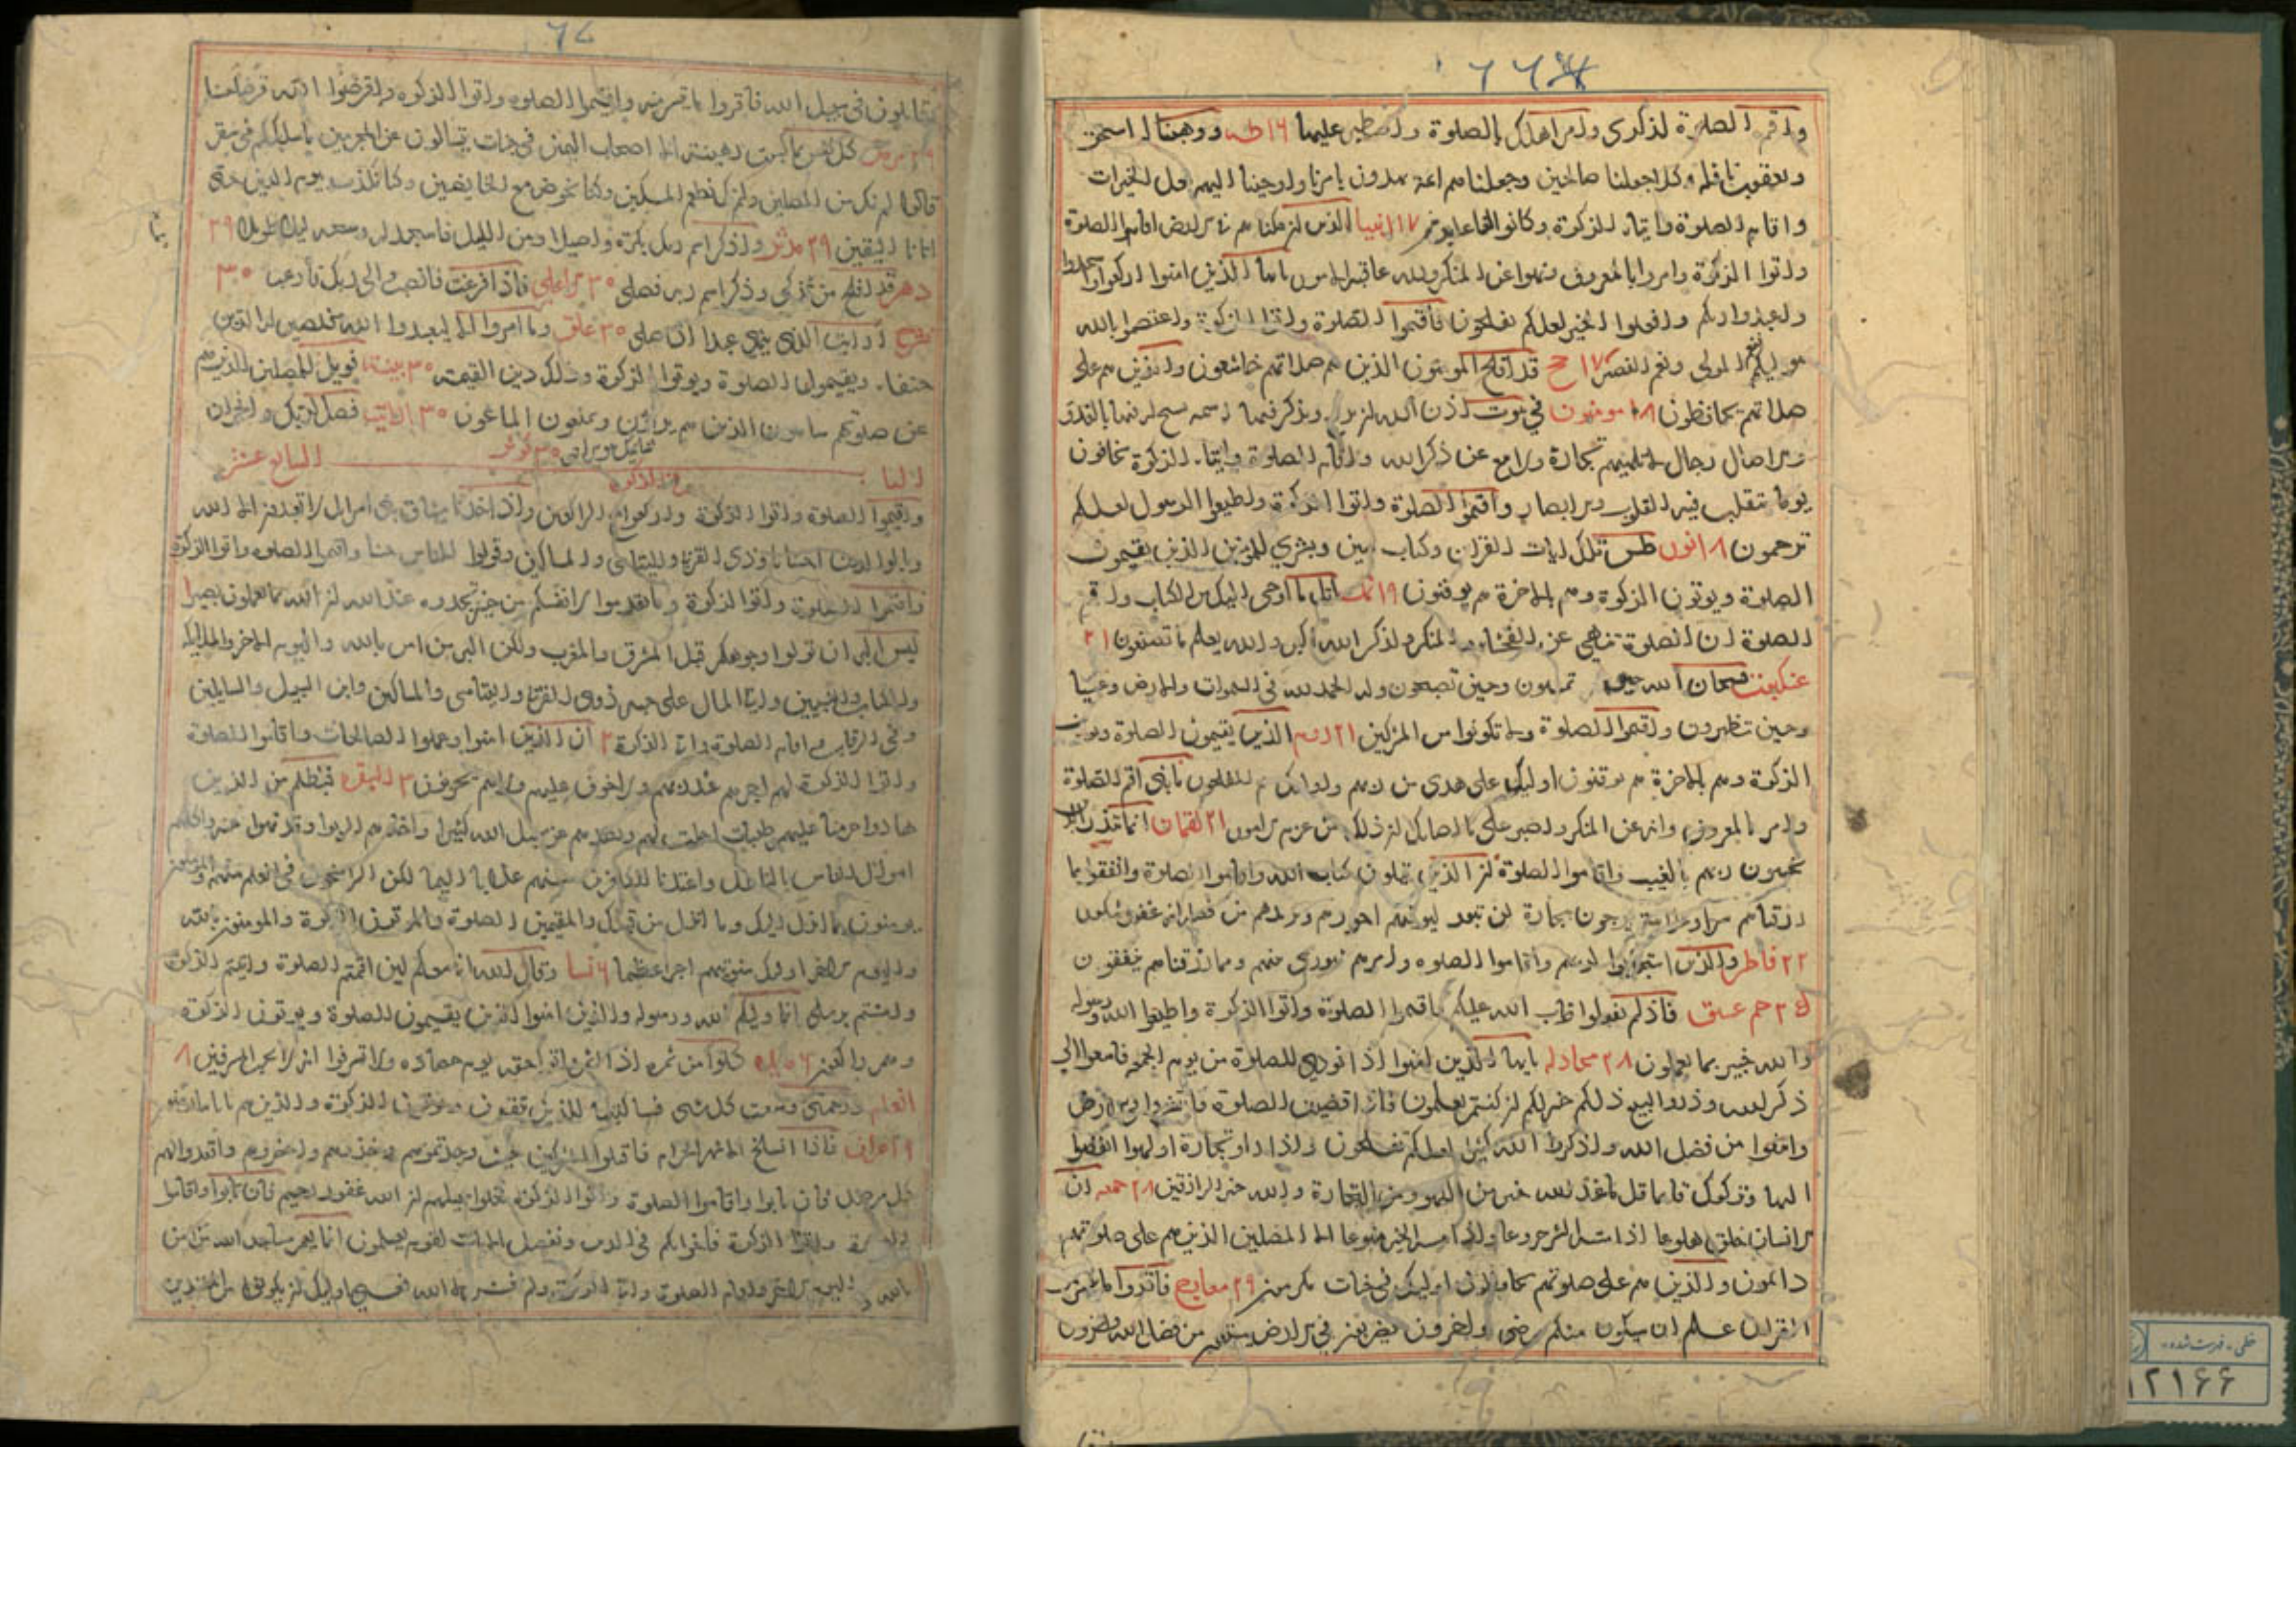 واقم الصلوة لذكرى وامر اهلك بالصلوة واصطبر عليها ١٦ طه ووهبنا له اسحق
ويعقوب نافلة وكلا جعلنا صالحين وجعلناهم ائمة يهدون بامرنا واوحينا اليهم فعل الخيرات
واقام الصلوة وايتاء الزكوة وكانوا لنا عابدين ١٧ انبيا الذين ان مكناهم فى الارض اقاموا الصلوة
واتوا الزكوة وامروا بالمعروف ونهوا عن المنكر ولله عاقبة الامور يا ايها الذين امنوا اركعوا واسجدوا
واعبدوا ربكم وافعلوا الخير لعلكم تفلحون فاقيموا الصلوة واتوا الزكوة واعتصموا بالله
هو موليكم فنعم المولى ونعم النصير ١٧ حج قد افلح المومنون الذين هم فى صلاتهم خاشعون والذين هم على
صلاتهم يحافظون ١٨ مومنون فى بيوت اذن الله ان ترفع ويذكر فيها اسمه يسبح له فيها بالغدو
والاصال رجال لا تلهيهم تجارة ولا بيع عن ذكر الله واقام الصلوة وايتاء الزكوة يخافون
يوما تتقلب فيه القلوب والابصار واقيموا الصلوة واتوا الزكوة واطيعوا الرسول لعلكم
ترحمون ١٨ نور طس تلك ايات القران وكتاب مبين وبشرى للمؤمنين الذين يقيمون
الصلوة ويوتون الزكوة وهم بالاخرة هم يوقنون ١٩ نمل اتل ما اوحى اليك من الكتاب واقم
الصلوة ان الصلوة تنهى عن الفحشاء والمنكر ولذكر الله اكبر والله يعلم ما تصنعون ٢١
عنكبوت فسبحان الله حين تمسون وحين تصبحون وله الحمد فى السموات والارض وعشيا
وحين تظهرون واقيموا الصلوة ولا تكونوا من المشركين ٢١ روم الذين يقيمون الصلوة ويوتون
الزكوة وهم بالاخرة هم يوقنون اوليك على هدى من ربهم واوليك هم المفلحون يا بنى اقم الصلوة
وامر بالمعروف وانه عن المنكر واصبر على ما اصابك ان ذلك من عزم الامور ٢١ لقمان انما تنذر الذين
يخشون ربهم بالغيب واقاموا الصلوة ان الذين يتلون كتاب الله واقاموا الصلوة وانفقوا مما
رزقناهم سرا وعلانية يرجون تجارة لن تبور ليوفيهم اجورهم ويزيدهم من فضله انه غفور شكور
٢٢ فاطر والذين استجابوا لربهم واقاموا الصلوه وامرهم شورى بينهم ومما رزقناهم ينفقون
٢٥ حم عسق فاذ لم تفعلوا وتاب الله عليكم فاقيموا الصلوة واتوا الزكوة واطيعوا الله ورسوله
والله خبير بما تعملون ٢٨ مجادله يا ايها الذين امنوا اذا نودى للصلوة من يوم الجمعه فاسعوا الى
ذكر الله وذروا البيع ذلكم خير لكم ان كنتم تعلمون فاذا قضيت الصلوة فانتشروا فى الارض
وابتغوا من فضل الله واذكروا الله كثيرا لعلكم تفلحون واذا راوا تجارة او لهوا انفضوا
اليها وتركوك قايما قل ما عند الله خير من اللهو ومن التجارة والله خير الرازقين ٢٨ جمعه ان
الانسان خلق هلوعا اذا مسه الشر جزوعا واذا مسه الخير منوعا الا المصلين الذين هم على صلوتهم
دائمون والذين هم على صلوتهم يحافظون اوليك فى جنات مكرمون ٢٩ معارج فاقروا ما تيسر من
القران علم ان سيكون منكم مرضى واخرون يضربون فى الارض يبتغون من فضل الله واخرون
يقاتلون فى سبيل الله فاقروا ما تيسر منه واقيموا الصلوه واتوا الزكوه واقرضوا الله قرضا حسنا
٢٩ مزمل كل نفس بما كسبت رهينة الا اصحاب اليمين فى جنات يتسالون عن المجرمين ما سلككم فى سقر
قالوا لم نك من المصلين ولم نك نطعم المسكين وكنا نخوض مع الخايضين وكنا نكذب بيوم الدين حتى
اتانا اليقين ٢٩ مدثر واذكر اسم ربك بكرة واصيلا ومن الليل فاسجد له وسبحه ليلا طويلا ٢٩
دهر قد افلح من تزكى وذكر اسم ربه فصلى ٣٠ اعلى فاذا فرغت فانصب والى ربك فارغب ٣٠
شرح ارايت الذى ينهى عبدا اذا صلى ٣٠ علق وما امروا الا ليعبدوا الله مخلصين له الدين
حنفاء ويقيموا الصلوة ويوتوا الزكوة وذلك دين القيمة ٣٠ بينة فويل للمصلين الذين هم
عن صلوتهم ساهون الذين هم يراؤن ويمنعون الماعون ٣٠ فصل لربك وانحر ان
٣٠ كوثر
الباب السابع عشر
فى الزكوة
واقيموا الصلوة واتوا الزكوة واركعوا مع الراكعين واذ اخذنا ميثاق بنى اسرائيل لا تعبدون الا الله
وبالوالدين احسانا وذى القربى واليتامى والمساكين وقولوا للناس حسنا واقيموا الصلوه واتوا الزكوة
واقيموا الصلوة واتوا الزكوة وما تقدموا لانفسكم من خير تجدوه عند الله ان الله بما تعملون بصير ١
ليس البر ان تولوا وجوهكم قبل المشرق والمغرب ولكن البر من امن بالله واليوم الاخر والملائكة
والكتاب والنبيين واتى المال على حبه ذوى القربى واليتامى والمساكين وابن السبيل والسايلين
وفى الرقاب واقام الصلوة واتى الزكوة ٢ ان الذين امنوا وعملوا الصالحات واقاموا الصلوة
واتوا الزكوة لهم اجرهم عند ربهم ولا خوف عليهم ولا هم يحزنون ٣ البقره فبظلم من الذين
هادوا حرمنا عليهم طيبات احلت لهم وبصدهم عن سبيل الله كثيرا واخذهم الربوا وقد نهوا عنه واكلهم
اموال الناس بالباطل واعتدنا للكافرين منهم عذابا اليما لكن الراسخون فى العلم منهم والمومنون
يومنون بما انزل اليك وما انزل من قبلك والمقيمين الصلوة والموتون الزكوة والمومنون بالله
واليوم الاخر اوليك سنوتيهم اجرا عظيما ٦ نسا وقال الله انى معكم لئن اقمتم الصلوة واتيتم الزكوة
وامنتم برسلى انما وليكم الله ورسوله والذين امنوا الذين يقيمون الصلوة ويوتون الزكوة
وهم راكعون ٦ مايده كلوا من ثمره اذا اثمر واتوا حقه يوم حصاده ولا تسرفوا انه لا يحب المسرفين ٨
انعام ورحمتى وسعت كل شى فساكتبها للذين يتقون ويوتون الزكوة والذين هم باياتنا يومنون
٩ اعراف فاذا انسلخ الاشهر الحرم فاقتلوا المشركين حيث وجدتموهم وخذوهم واحصروهم واقعدوا لهم
كل مرصد فان تابوا واقاموا الصلوة واتوا الزكوة فخلوا سبيلهم ان الله غفور رحيم فان تابوا واقاموا
الصلوة واتوا الزكوة فاخوانكم فى الدين ونفصل الايات لقوم يعلمون انما يعمر مساجد الله من امن
بالله واليوم الاخر واقام الصلوة واتى الزكوة ولم يخش الا الله فعسى اوليك ان يكونوا من المهتدين
خطى - فهرست شده
١٢١٦٦